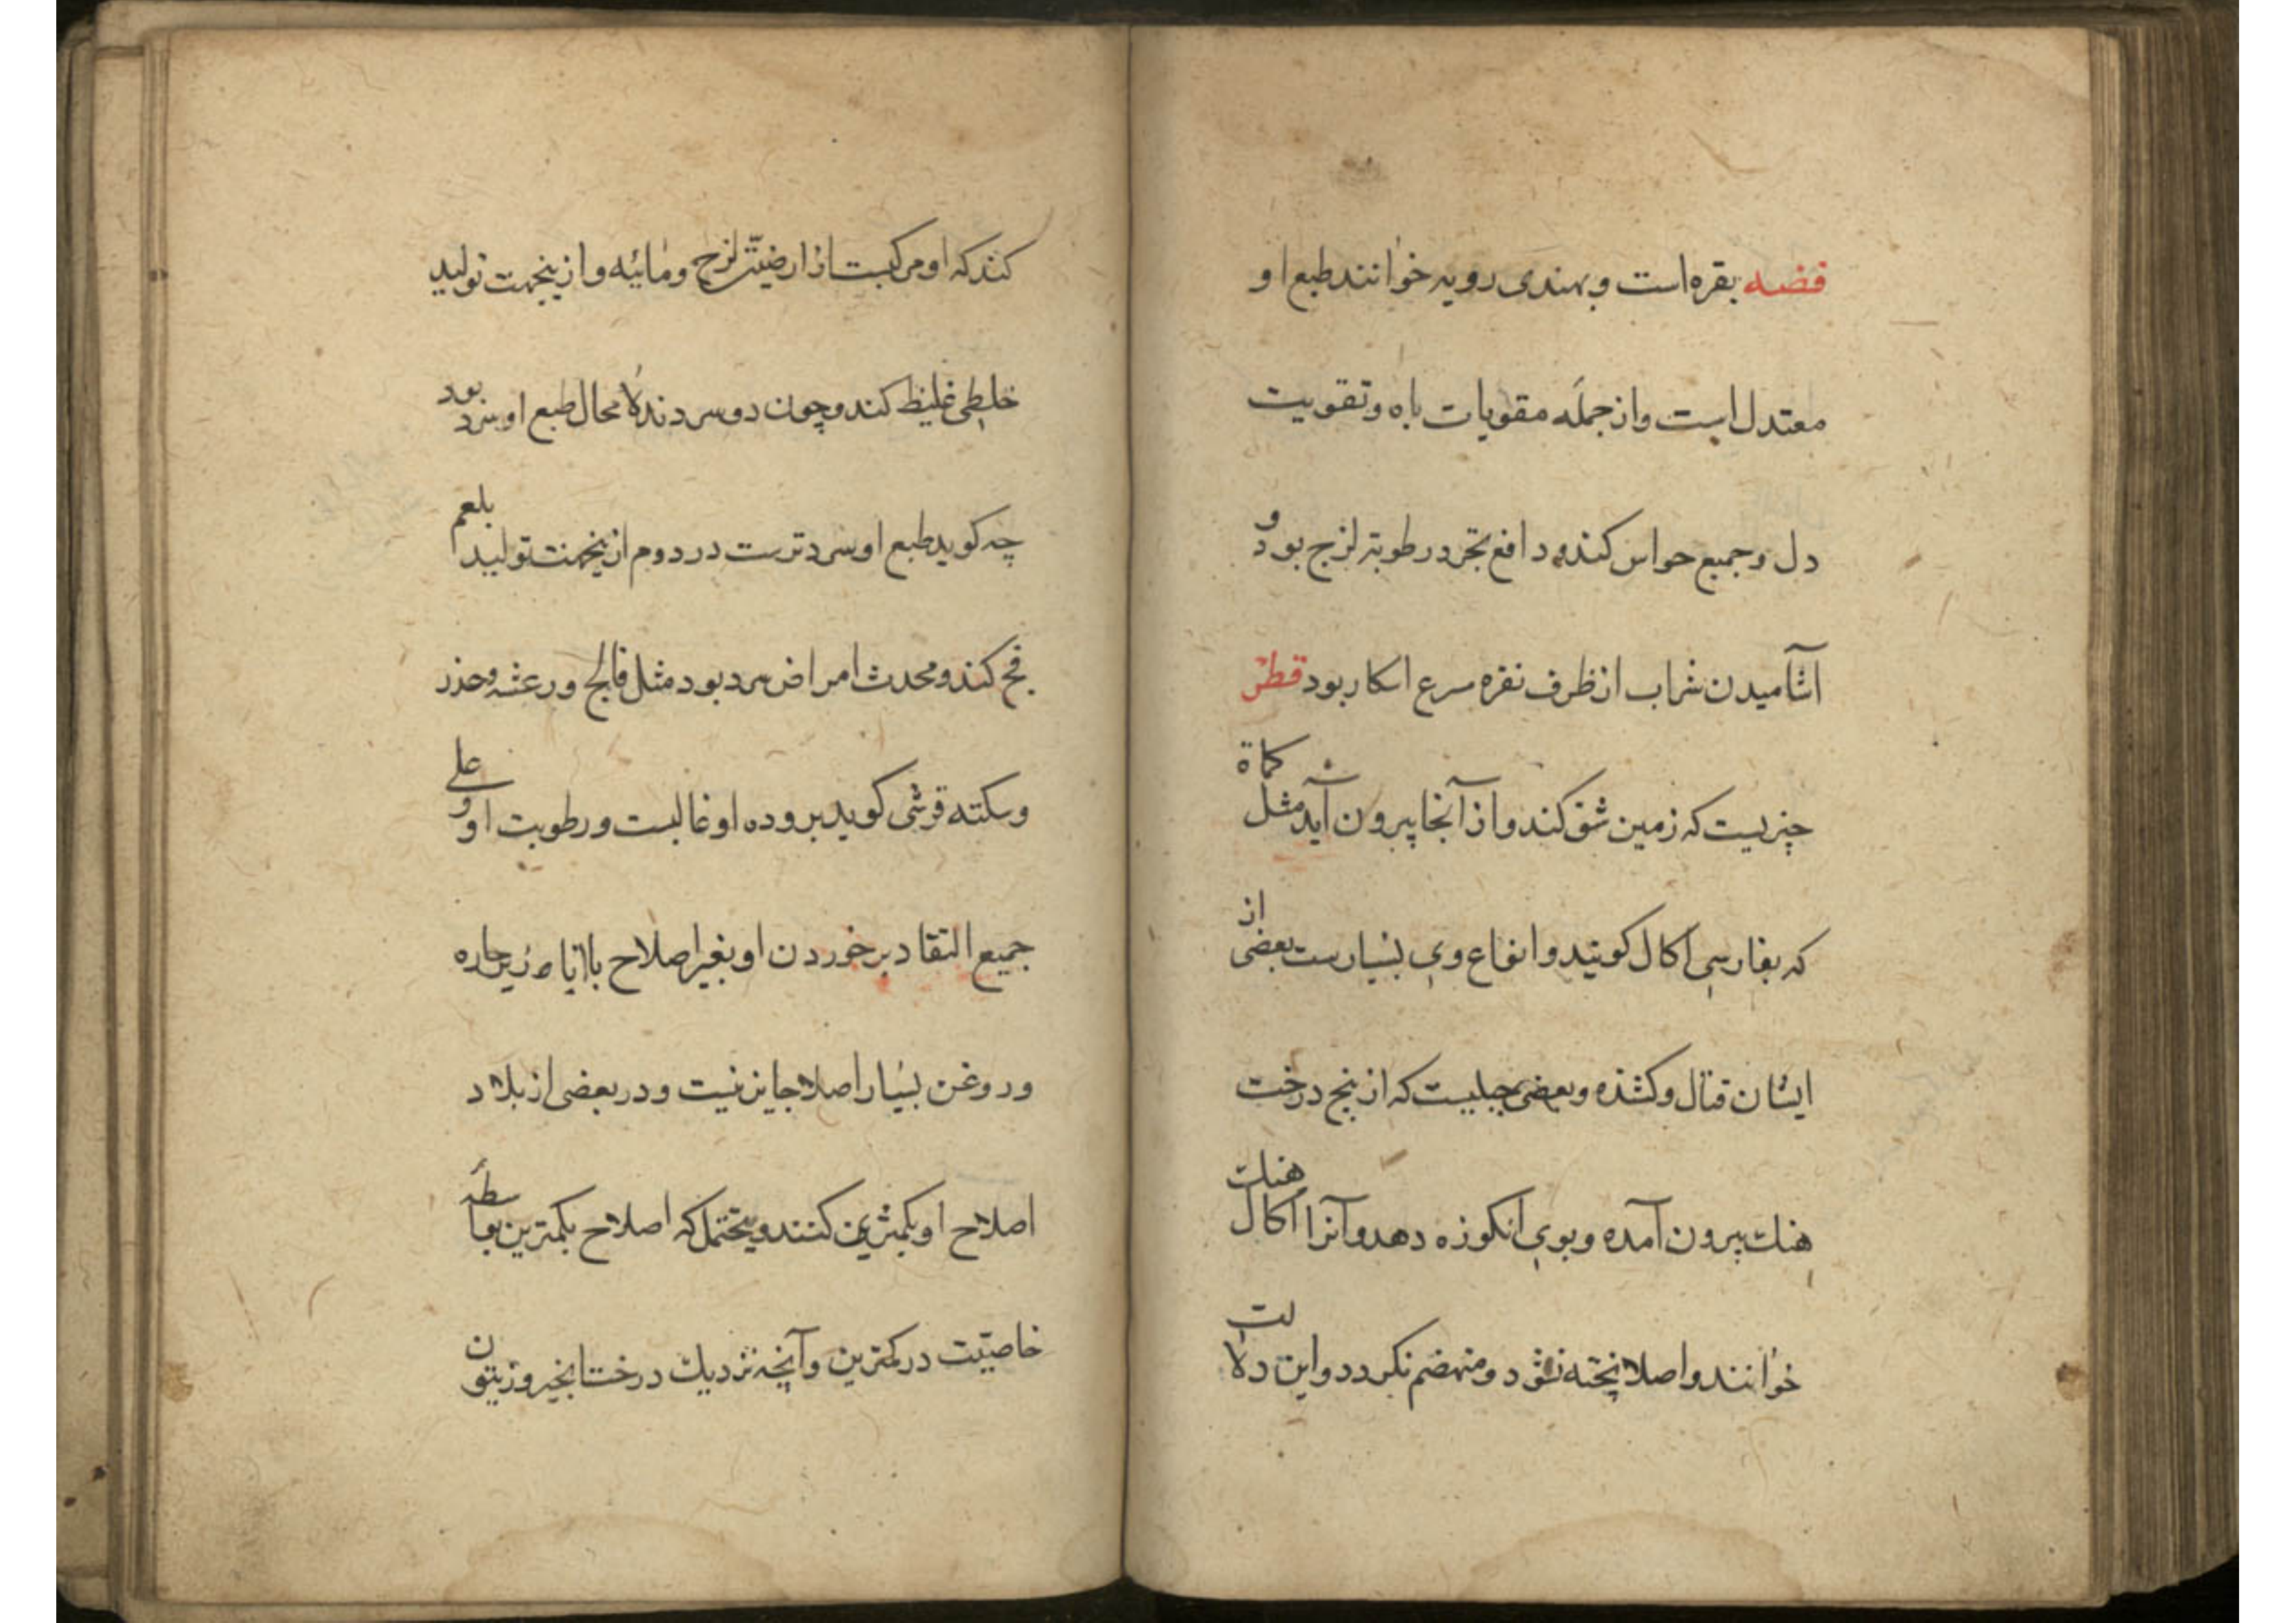 فضه نقره است و بهندی روپه خوانند طبع او
معتدل است و از جمله مقویات باه و تقویت
دل و جمیع حواس کند و دافع بخر و رطوبة لزج بود و
آشامیدن شراب از ظرف نقره سرع اسکار بود فطر
چیزیست که زمین شق کند و از آنجا بیرون آید مثل کماة
که بفارسی اکال گویند و انواع وی بسیارست بعضی از
ایشان قتال و کشنده و بعضی جبلیست که از بیخ درخت
هنک بیرون آمده و بوی انکوزه دهد و آنرا اکال هنک
خوانند و اصلا پخته نشود و منهضم نکردد و این دلالت
کند که او مرکبست از ارضیة لزج و مائیه و ازینجهت تولید
خلطی غلیظ کند و چون دو سردند لا محال طبع او سرد بود
چه کوید طبع او سرد ترست در دوم ازینجهت تولید بلغم
فج کند و محدث امراض سرد بود مثل فالج و رعشه و خدر
و سکته قرشی کوید بروده او غالبست و رطوبت او و علی
جمیع التقادیر خوردن او بغیر اصلاح با حاره
و روغن بسیار اصلا جایز نیست و در بعضی از بلاد
اصلاح او بکمثرین کنند و یحتمل که اصلاح بکمترین بواسطه
خاصیّت در کمثرین و آنچه نزدیک درخت انجیر و زیتون